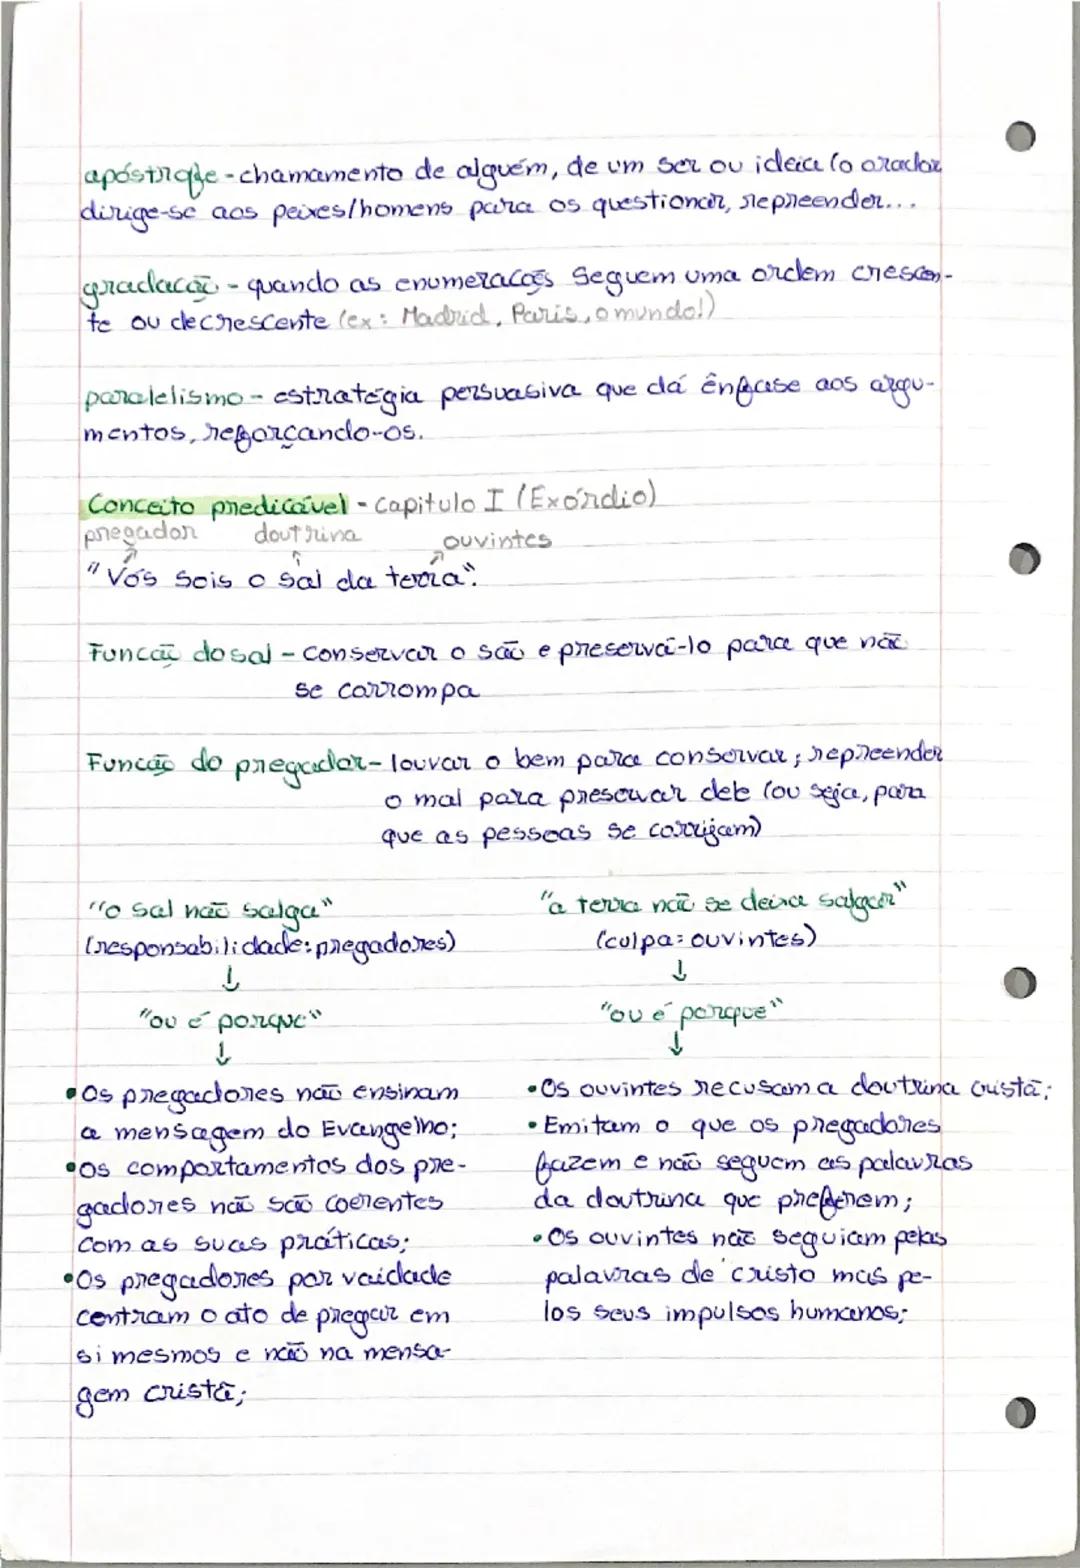 apóstrofe - chamamento de alguém, de um ser ou ideia (o orador
dirige-se aos peixes/homens para os questionar, repreender...
gradação - quando as enumerações seguem uma ordem crescen-
te ou decrescente (ex: Madrid, Paris, o mundo!)
paralelismo - estratégia persuasiva que dá ênfase aos argu-
mentos, reforçando-os.
Conceito predicável - Capitulo I (Exórdio)
pregador doutrina ouvintes
"Vós sois o sal da terra".
Função do sal - Conservar o são e preservá-lo para que não
se corrompa
Função do pregador - louvar o bem para conservar; repreender
o mal para preservar dele (ou seja, para
que as pessoas se corrijam)
"o sal não salga"
(responsabilidade: pregadores)
↓
"ou é porque"
↓
• Os pregadores não ensinam
a mensagem do Evangelho;
• Os comportamentos dos pre-
gadores não são coerentes
com as suas práticas;
• Os pregadores por vaidade
centram o ato de pregar em
si mesmos e não na mensa-
gem cristã;
"a terra não se deixa salgar"
(culpa: ouvintes)
↓
"ou é porque"
↓
• Os ouvintes recusam a doutrina cristã;
• Emitam o que os pregadores
fazem e não seguem as palavras
da doutrina que preferem;
• Os ouvintes não seguiam pelas
palavras de cristo mas pe-
los seus impulsos humanos;